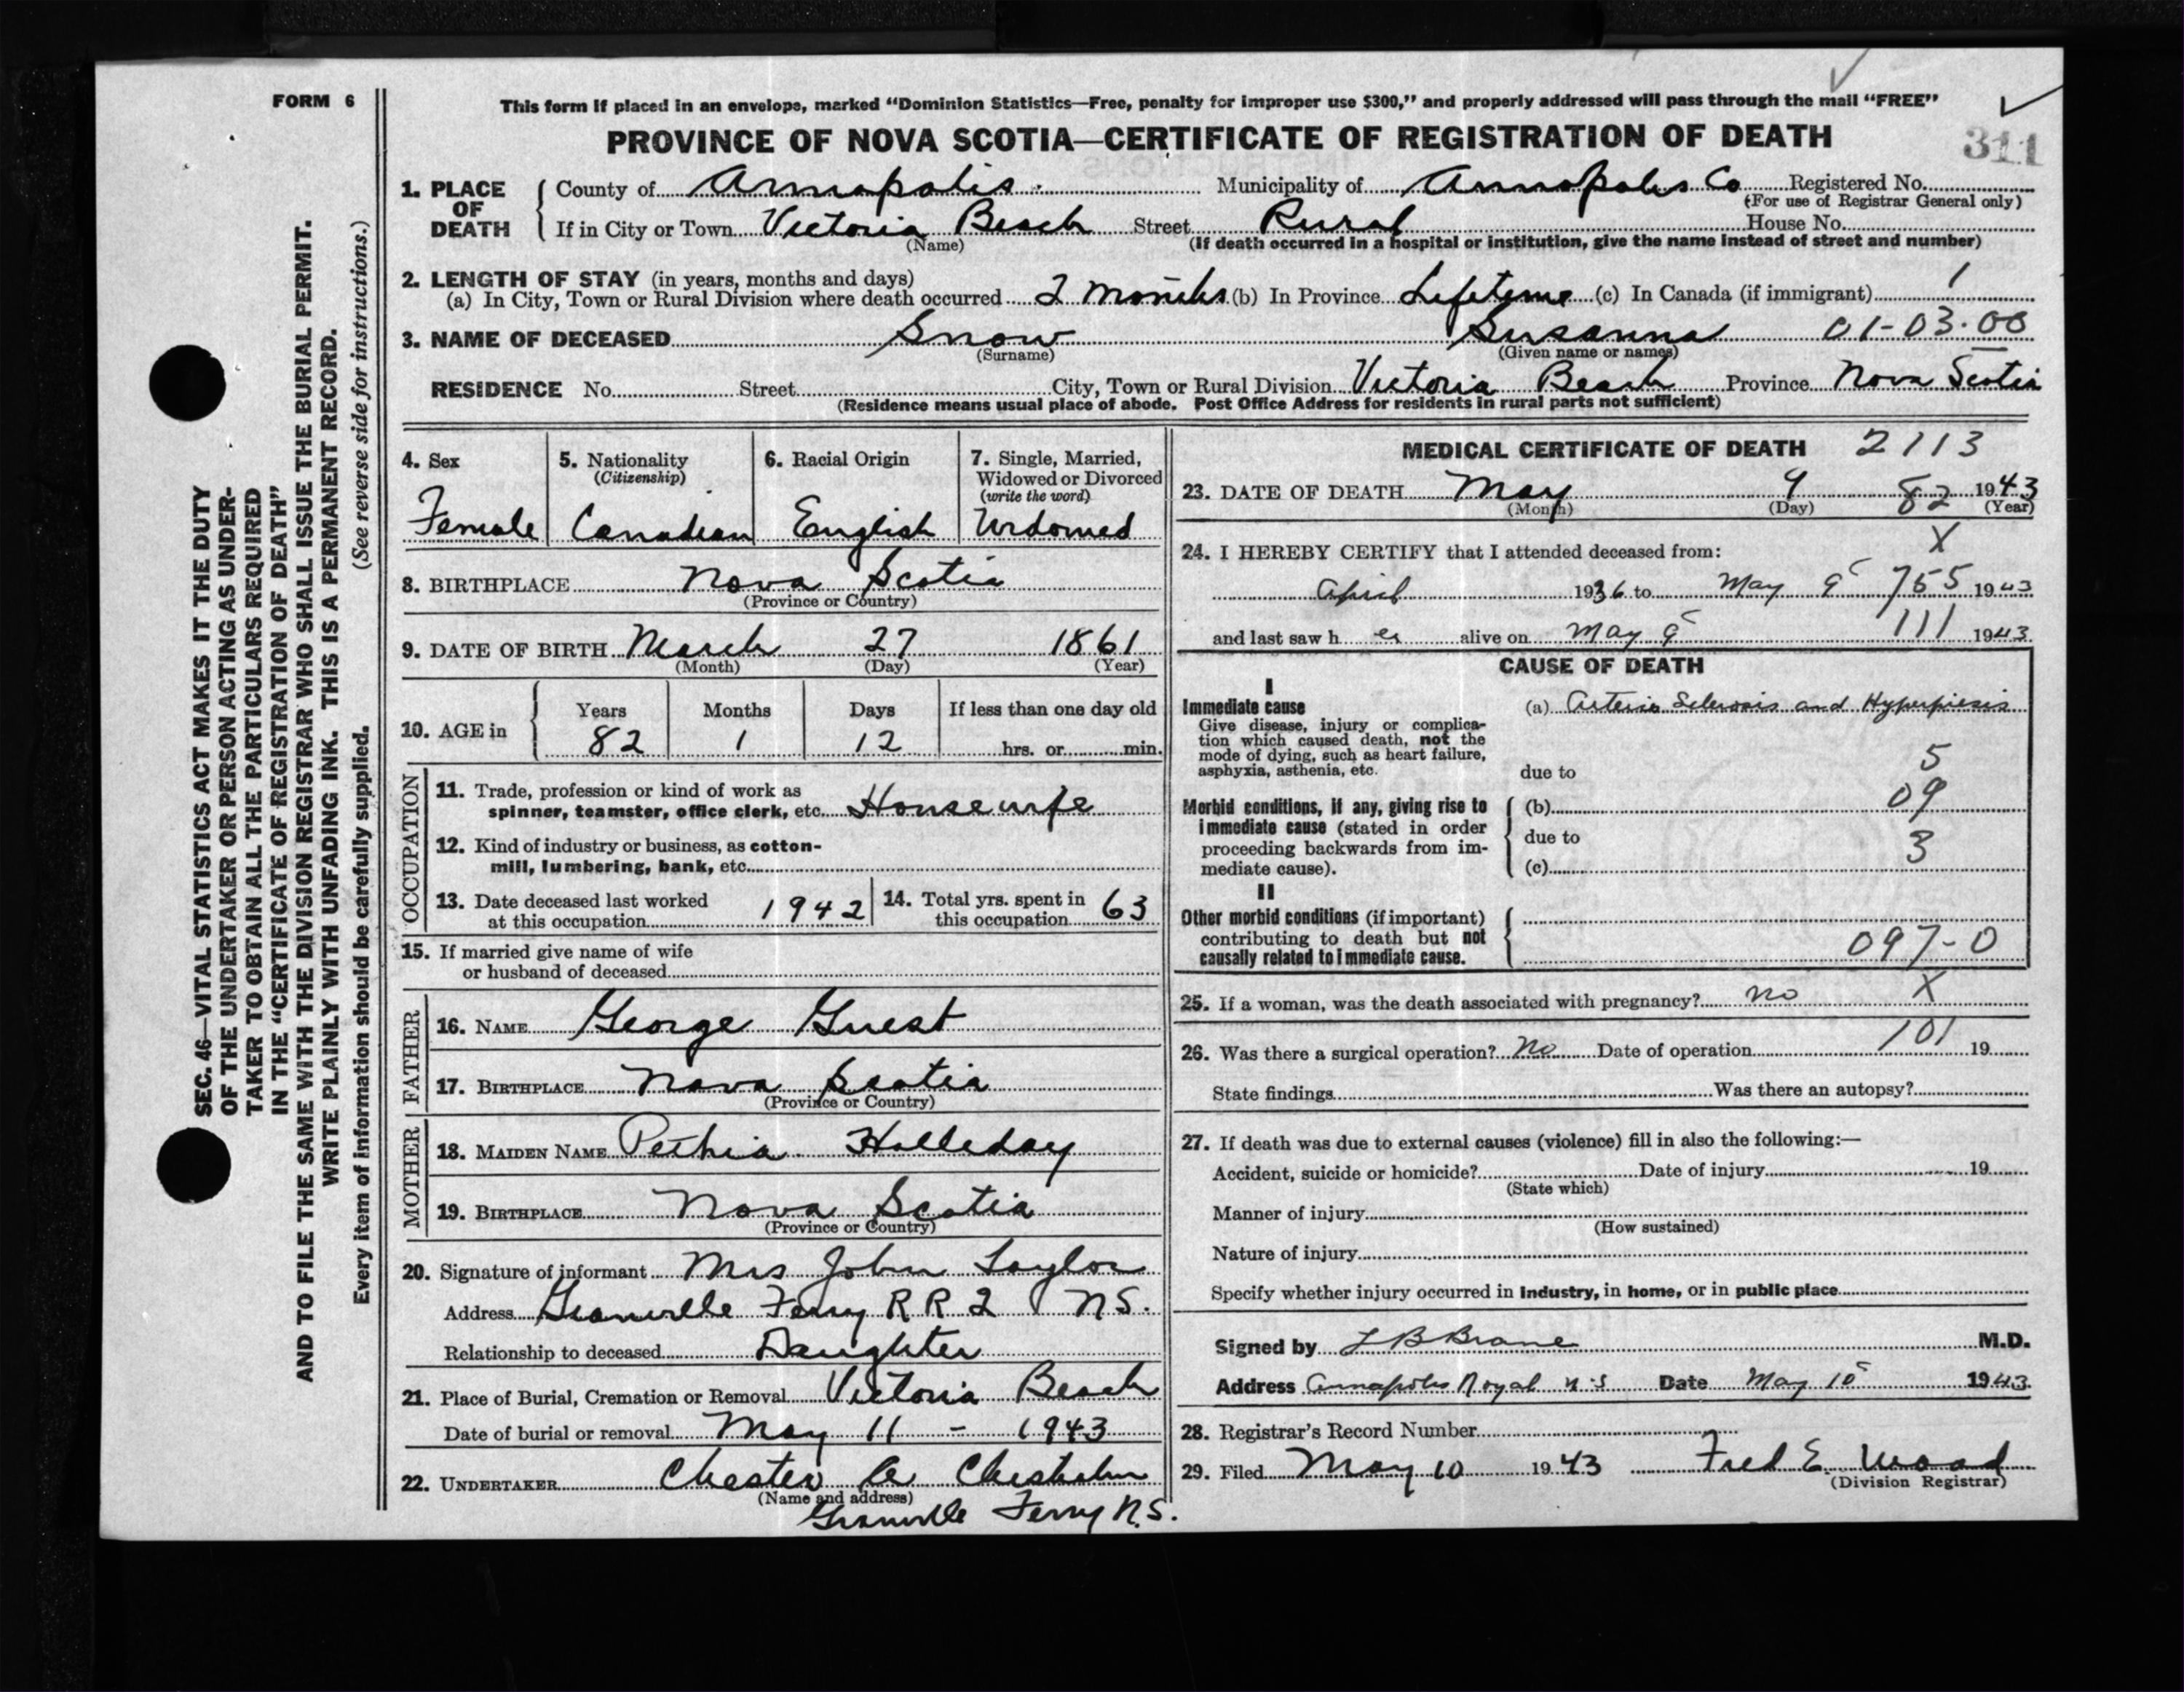 FORM 6
This form if placed in an envelope, marked "Dominion Statistics—Free, penalty for improper use $300," and properly addressed will pass through the mail "FREE"
PROVINCE OF NOVA SCOTIA—CERTIFICATE OF REGISTRATION OF DEATH
311
1. PLACE OF DEATH County of Annapolis. Municipality of Annapolis Co Registered No.
(For use of Registrar General only)
If in City or Town Victoria Beach Street Rural House No.
(Name) (If death occurred in a hospital or institution, give the name instead of street and number)
2. LENGTH OF STAY (in years, months and days)
(a) In City, Town or Rural Division where death occurred 2 Months (b) In Province Lifetime (c) In Canada (if immigrant) 1
3. NAME OF DECEASED Snow Susanna 01-03-00
(Surname) (Given name or names)
RESIDENCE No. Street City, Town or Rural Division Victoria Beach Province Nova Scotia
(Residence means usual place of abode. Post Office Address for residents in rural parts not sufficient)
4. Sex
Female
5. Nationality
(Citizenship)
Canadian
6. Racial Origin
English
7. Single, Married,
Widowed or Divorced
(write the word)
Widowed
8. BIRTHPLACE Nova Scotia
(Province or Country)
9. DATE OF BIRTH March 27 1861
(Month) (Day) (Year)
10. AGE in Years Months Days If less than one day old
82 1 12 hrs. or min.
OCCUPATION
11. Trade, profession or kind of work as
spinner, teamster, office clerk, etc. Housewife
12. Kind of industry or business, as cotton-
mill, lumbering, bank, etc.
13. Date deceased last worked
at this occupation 1942
14. Total yrs. spent in
this occupation 63
15. If married give name of wife
or husband of deceased
FATHER
16. NAME George Guest
17. BIRTHPLACE Nova Scotia
(Province or Country)
MOTHER
18. MAIDEN NAME Halleday
19. BIRTHPLACE Nova Scotia
(Province or Country)
20. Signature of informant Mrs John Taylor
Address Granville Ferry R R 2 N S.
Relationship to deceased Daughter
21. Place of Burial, Cremation or Removal Victoria Beach
Date of burial or removal May 11 - 1943
22. UNDERTAKER Chester A Chisholm
(Name and address)
Granville Ferry N.S.
MEDICAL CERTIFICATE OF DEATH 2113
23. DATE OF DEATH May 9 82 1943
(Month) (Day) (Year)
24. I HEREBY CERTIFY that I attended deceased from: X
April 1936 to May 9 755 1943
and last saw h er alive on May 9 111 1943
CAUSE OF DEATH
I
Immediate cause
Give disease, injury or complica-
tion which caused death, not the
mode of dying, such as heart failure,
asphyxia, asthenia, etc.
(a) Arterio Sclerosis and Hyperpiesis
5
due to
Morbid conditions, if any, giving rise to
immediate cause (stated in order
proceeding backwards from im-
mediate cause).
(b) 09
due to 3
(c)
II
Other morbid conditions (if important)
contributing to death but not
causally related to immediate cause.
097-0
25. If a woman, was the death associated with pregnancy? no X
26. Was there a surgical operation? No Date of operation 101 19
State findings Was there an autopsy?
27. If death was due to external causes (violence) fill in also the following:—
Accident, suicide or homicide? Date of injury 19
(State which)
Manner of injury
(How sustained)
Nature of injury
Specify whether injury occurred in industry, in home, or in public place
Signed by L B Brane M.D.
Address Annapolis Royal N S Date May 10 1943
28. Registrar's Record Number
29. Filed May 10 1943 Fred E. Wood
(Division Registrar)
SEC. 46—VITAL STATISTICS ACT MAKES IT THE DUTY
OF THE UNDERTAKER OR PERSON ACTING AS UNDER-
TAKER TO OBTAIN ALL THE PARTICULARS REQUIRED
IN THE "CERTIFICATE OF REGISTRATION OF DEATH"
AND TO FILE THE SAME WITH THE DIVISION REGISTRAR WHO SHALL ISSUE THE BURIAL PERMIT.
WRITE PLAINLY WITH UNFADING INK. THIS IS A PERMANENT RECORD.
Every item of information should be carefully supplied. (See reverse side for instructions.)